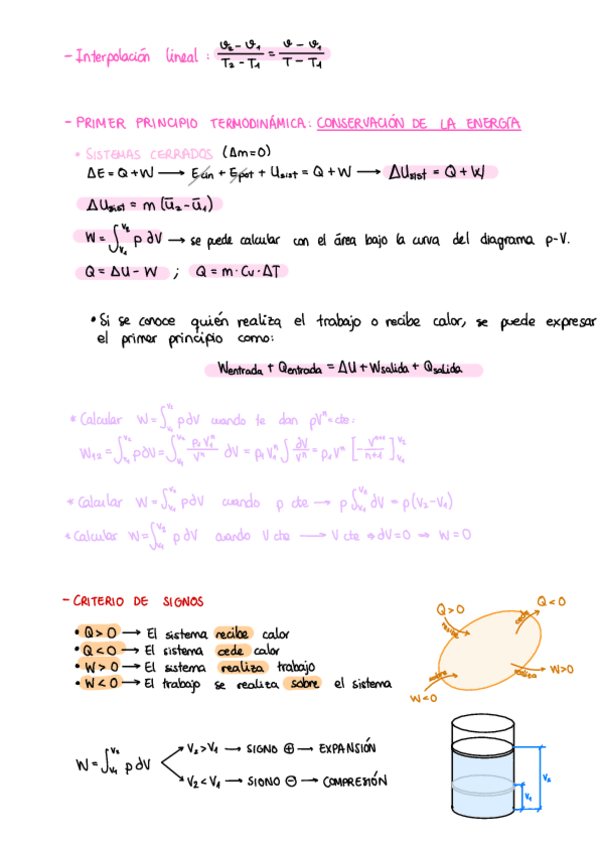 - Interpolación lineal: (v₂ - v₁)/(T₂ - T₁) = (v - v₁)/(T - T₁)
- PRIMER PRINCIPIO TERMODINÁMICA: CONSERVACIÓN DE LA ENERGÍA
• SISTEMAS CERRADOS (Δm=0)
ΔE = Q+W → Ecin + Epot + Usist = Q + W → ΔUsist = Q + W
ΔUsist = m (ū₂ - ū₁)
W = ∫_{V₁}^{V₂} p dV → se puede calcular con el área bajo la curva del diagrama p-V.
Q = ΔU - W ; Q = m · Cv · ΔT
• Si se conoce quién realiza el trabajo o recibe calor, se puede expresar
el primer principio como:
Wentrada + Qentrada = ΔU + Wsalida + Qsalida
* Calcular W = ∫_{V₁}^{V₂} p dV cuando te dan pVⁿ = cte:
W₁₂ = ∫_{V₁}^{V₂} p dV = ∫_{V₁}^{V₂} (p₁V₁ⁿ)/(Vⁿ) dV = p₁V₁ⁿ ∫ dV/Vⁿ = p₁Vⁿ [- Vⁿ⁺¹/(n+1)]_{V₁}^{V₂}
* Calcular W = ∫_{V₁}^{V₂} p dV cuando p cte → p ∫_{V₁}^{V₂} dV = p(V₂-V₁)
* Calcular W = ∫_{V₁}^{V₂} p dV cuando V cte → V cte ⇒ dV=0 ⇒ W=0
- CRITERIO DE SIGNOS
• Q > 0 → El sistema recibe calor
• Q < 0 → El sistema cede calor
• W > 0 → El sistema realiza trabajo
• W < 0 → El trabajo se realiza sobre el sistema
Q > 0
recibe
Q < 0
cede
sobre
W < 0
realiza
W > 0
W = ∫_{V₁}^{V₂} p dV
V₂ > V₁ → SIGNO ⊕ → EXPANSIÓN
V₂ < V₁ → SIGNO ⊖ → COMPRESIÓN
V₂
V₁